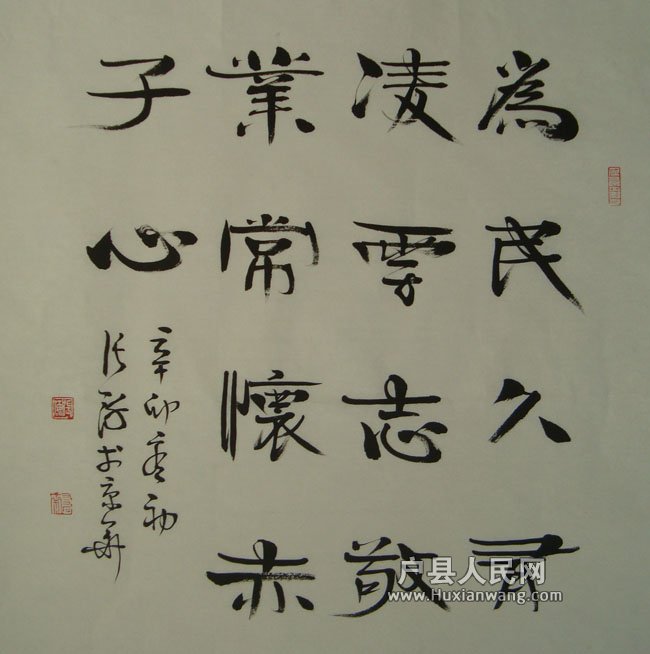 為民久有
凌雲志敬
業常懷赤
子心
辛卯春初
于京華
户县人民网
www.Huxianwang.com